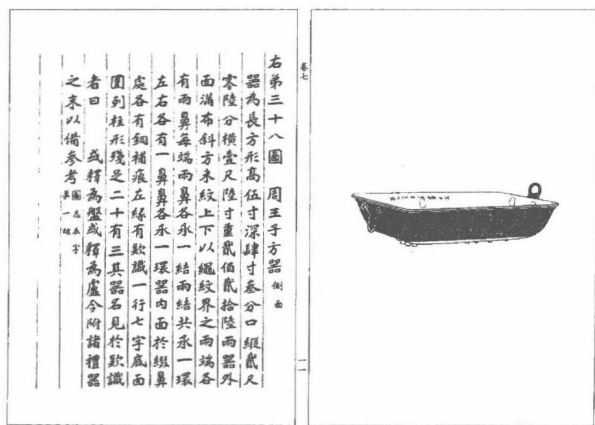 右第三十八圖　周王子方器側面
器為長方形高伍寸深肆寸叁分口縱貳尺
零陸分橫壹尺陸寸重貳佰貳拾陸兩器外
面滿布斜方米紋上下以繩紋界之兩端各
有兩鼻每端兩鼻各承一結兩結共承一環
左右各有一鼻鼻各承一環器内面於綴鼻
處各有銅補痕左緣有欵識一行七字底面
圍列柱形殘足二十有三其器名見於欵識
者曰　或釋為盤或釋為盧今附諸禮器
之末以備參考
卷七